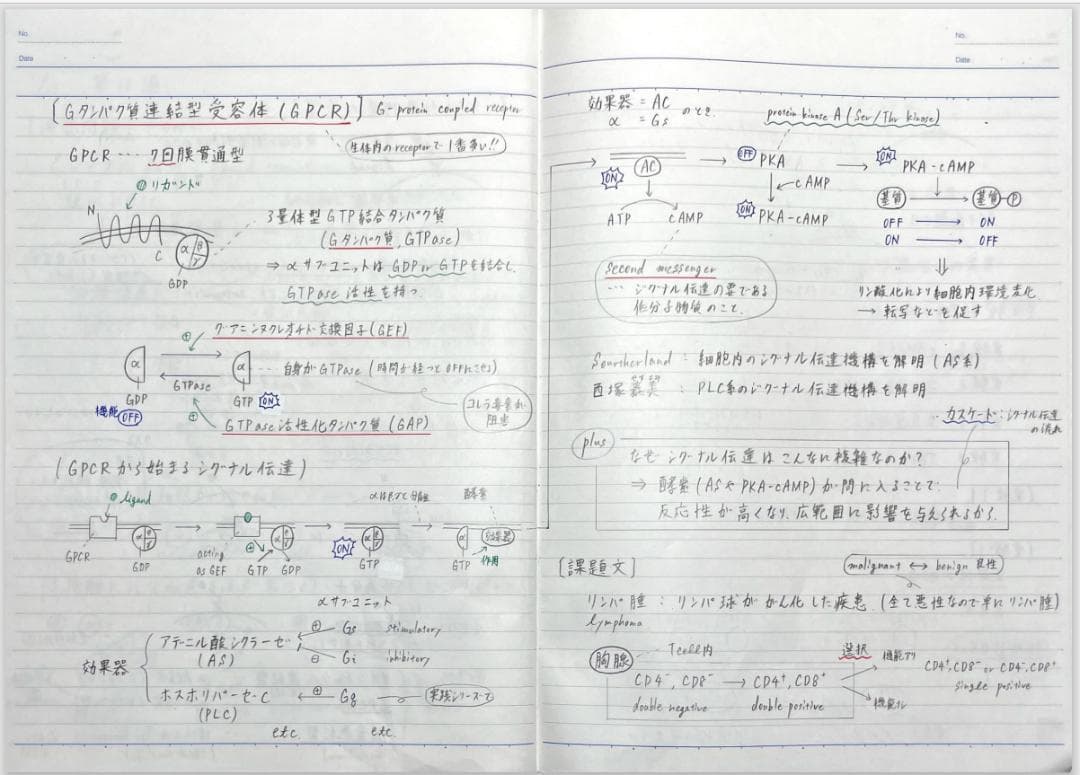 No.
Date
[Gタンパク質連結型受容体(GPCR)] G-protein coupled receptor
生体内のreceptorで1番多い!!
GPCR … 7回膜貫通型
リガンド
N
C
α
β
γ
GDP
3量体型GTP結合タンパク質
(Gタンパク質, GTPase)
⇒ αサブユニットはGDP or GTPを結合し、
GTPase活性を持つ
グアニンヌクレオチド交換因子(GEF)
⊕
α
GDP
GTPase
α
GTP
ON
… 自身がGTPase (時間が経つとOFFにできる)
コレラ毒素が
阻害
機能OFF
⊕
GTPase活性化タンパク質(GAP)
(GPCRから始まるシグナル伝達)
ligand
GPCR
GDP
acting
as GEF
⊕
GTP
GDP
ON
GTP
αはβγと分離
酵素
効果器
GTP
作用
αサブユニット
効果器
アデニル酸シクラーゼ
(AS)
⊕ Gs stimulatory
⊖ Gi inhibitory
ホスホリパーセC
(PLC)
⊕ Gq
実践シリーズで
etc.
etc.
No.
Date
効果器 = AC
α = Gs
のとき
protein kinase A (Ser/Thr kinase)
ON
AC
ATP
cAMP
OFF PKA
cAMP
ON PKA-cAMP
ON PKA-cAMP
基質
基質-P
OFF → ON
ON → OFF
⇓
リン酸化により細胞内環境変化
→ 転写などを促す
second messenger
… シグナル伝達の要である
低分子物質のこと。
Southerland : 細胞内のシグナル伝達機構を解明(AS系)
西塚 : PLC系のシグナル伝達機構を解明
カスケード:シグナル伝達
の流れ
plus
なぜシグナル伝達はこんなに複雑なのか?
⇒ 酵素(ASやPKA-cAMP)が間に入ることで、
反応性が高くなり、広範囲に影響を与えられるから。
[課題文]
malignant ↔ benign 良性
リンパ腫 : リンパ球ががん化した疾患 (全て悪性なので単にリンパ腫)
lymphoma
胸腺
T cell内
CD4⁻, CD8⁻ → CD4⁺, CD8⁺
double negative
double positive
選択
機能アリ
機能ナシ
CD4⁺, CD8⁻ or CD4⁻, CD8⁺
single positive